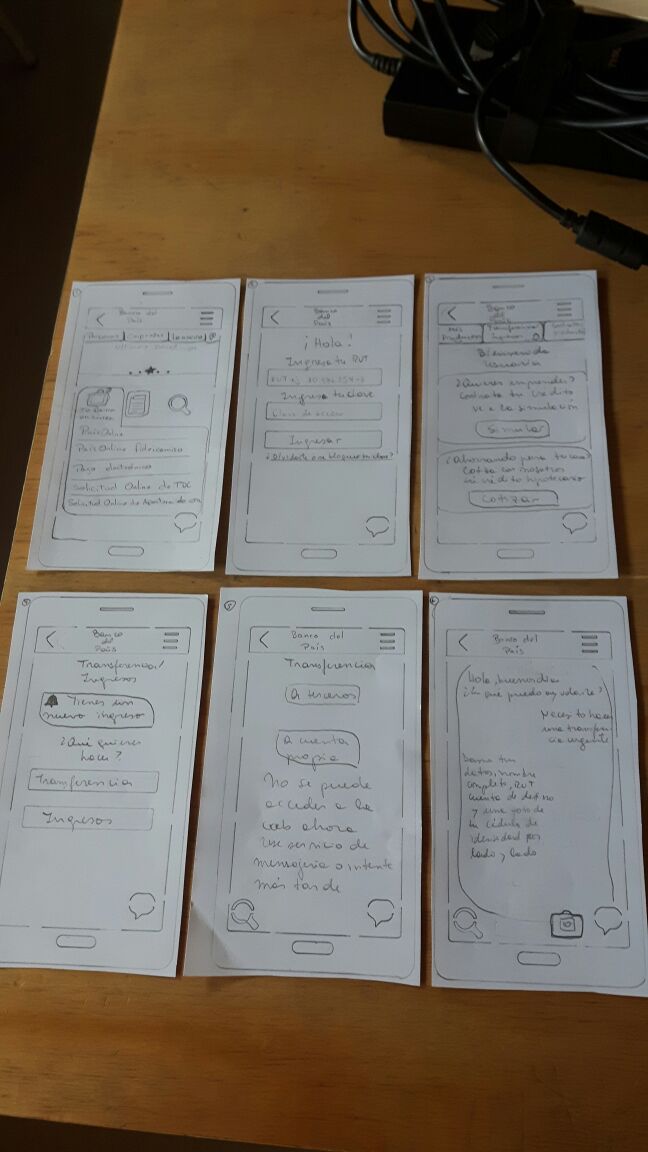 1
Banco del
País
Personas
Empresas
Tu Banco
en Línea
País Online
País Online Fideicomiso
Pago electrónico
Solicitud Online de TDC
Solicitud Online de Apertura de cta
2
Banco
del
País
¡Hola!
Ingresa tu RUT
RUT ej
Ingresa tu clave
Clave de acceso
Ingresar
¿Olvidaste o se bloqueo tu clave?
3
Banco
del
País
Más
Productos
Transferencias
Ingresos
Bienvenido
Usuario/a
¿Quieres emprender?
Contrata tu crédito
ve a la simulación
Simular
¿Ahorrando para tu casa
Cotiza con nosotros
crédito hipotecario
Cotizar
Banco
del
País
Transferencia/
Ingresos
Tienes un
nuevo ingreso
¿Qué quieres
hacer?
Transferencia
Ingresos
5
Banco del
País
Transferencia
A terceros
A cuenta
propia
No se puede
acceder a la
web ahora
use servicio de
mensajería o intente
más tarde
6
Banco del
País
Hola, buen día
¿En que puedo ayudarle?
Necesito hacer
una transferen
cia urgente
tus
datos, nombre
completo, RUT
cuenta de destino
y una foto de
tu cédula de
identidad por
lado y lado